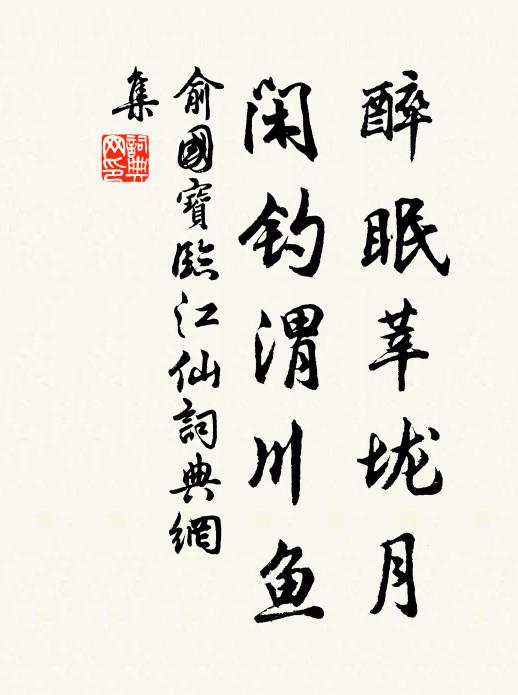 醉眠莘垅月
闲钓渭川鱼
俞國寶臨江仙詞典網
集
詞典
网印